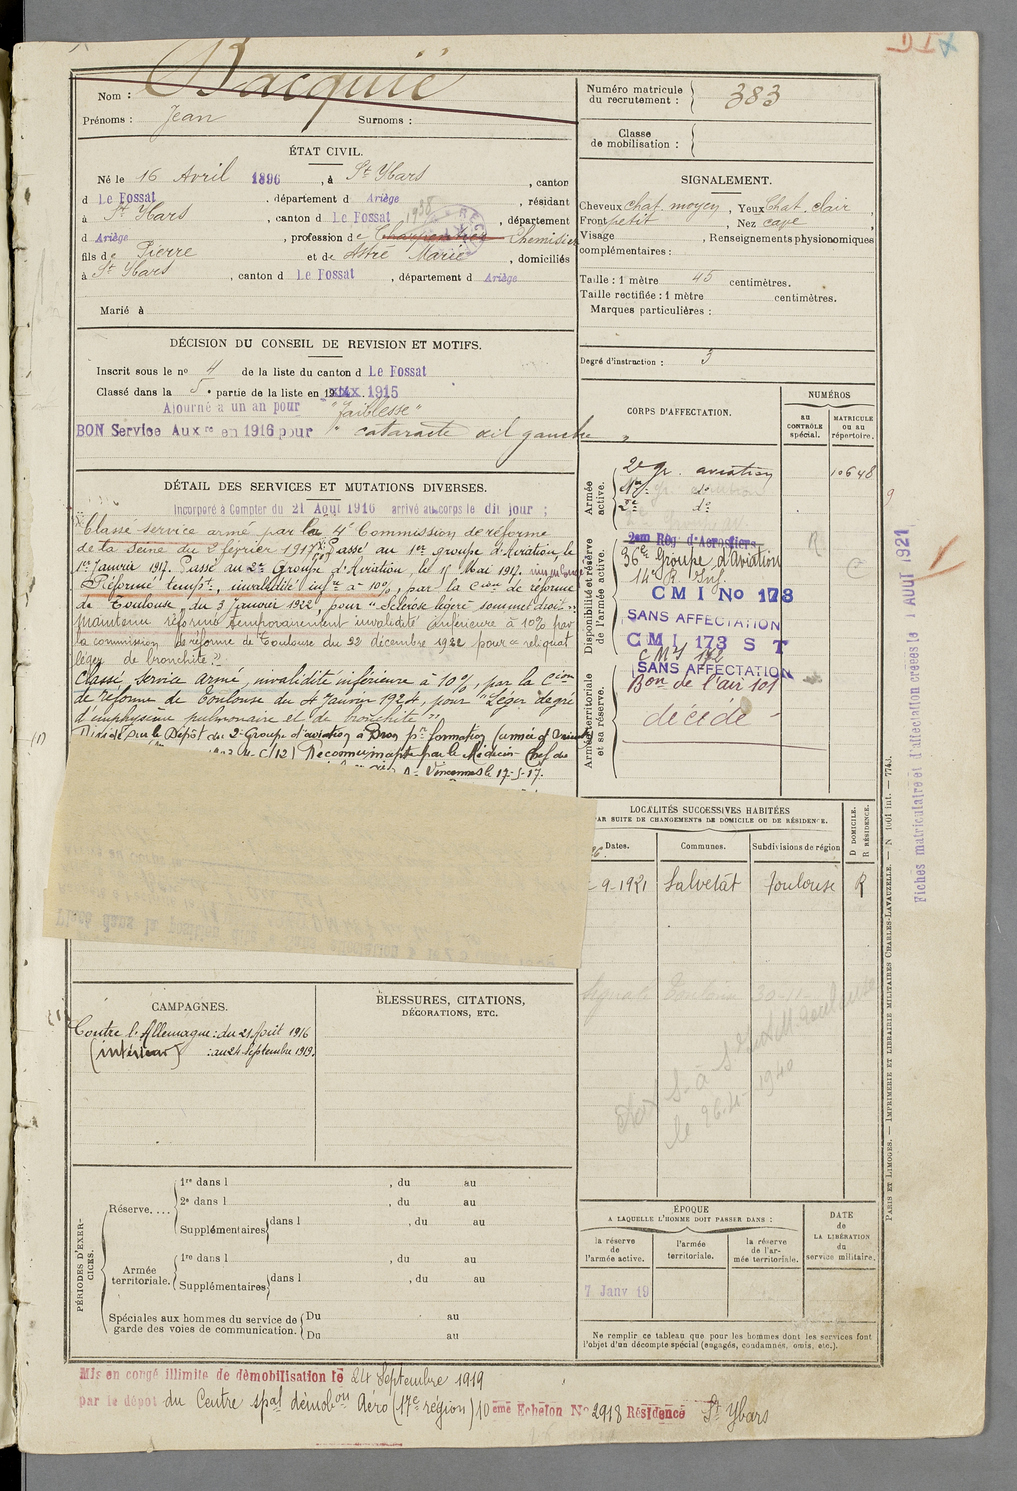 Nom : Bacquié
Prénoms : Jean Surnoms :
ÉTAT CIVIL.
Né le 16 Avril 1896, à St Ybars, canton
d Le Fossat, département d Ariège, résidant
à St Ybars, canton d Le Fossat, département
d Ariège, profession de Charpentier Chemisier
fils de Pierre et de Astre Marie, domiciliés
à St Ybars, canton d Le Fossat, département d Ariège
Marié à
DÉCISION DU CONSEIL DE REVISION ET MOTIFS.
Inscrit sous le no 4 de la liste du canton d Le Fossat
Classé dans la 5e partie de la liste en 1915
Ajourné a un an pour "faiblesse"
BON Service Auxre en 1916 pour "cataracte œil gauche"
DÉTAIL DES SERVICES ET MUTATIONS DIVERSES.
Incorporé à Compter du 21 Août 1916 arrivé au corps le dit jour ;
Classé service armé par la 4e Commission de réforme
de la Seine du 2 février 1917. Passé au 1er groupe d'Aviation le
1er Janvier 1917. Passé au 2e Groupe d'Aviation le 15 Mai 1917.
Réformé tempt. invalidité infre à 10%, par la Cion de réforme
de Toulouse du 3 Janvier 1922, pour "Sclérose légère sommet droit".
Maintenu réformé temporairement invalidité inférieure à 10% par
la commission de réforme de Toulouse du 22 décembre 1922 pour "reliquat
léger de bronchite"
Classé service armé, invalidité inférieure à 10%, par la Cion
de réforme de Toulouse du 4 Janvier 1924, pour "Léger degré
d'emphysème pulmonaire et de bronchite"
Dirigé sur le Dépôt du 2e Groupe d'aviation à Bron pr formation
Reconnu inapte par le Médecin Chef du
Vincennes le 17-5-17.
CAMPAGNES.
Contre l'Allemagne : du 21 Août 1916
(intérieur) : au 24 Septembre 1919.
BLESSURES, CITATIONS,
DÉCORATIONS, ETC.
PÉRIODES D'EXERCICES.
Réserve....
1re dans l , du au
2e dans l , du au
Supplémentaires dans l , du au
Armée territoriale.
1re dans l , du au
Supplémentaires dans l , du au
Spéciales aux hommes du service de garde des voies de communication.
Du au
Du au
Numéro matricule du recrutement : 383
Classe de mobilisation :
SIGNALEMENT.
Cheveux chat. moyen, Yeux Chat. clair,
Front petit, Nez cave,
Visage , Renseignements physionomiques
complémentaires :
Taille : 1 mètre 45 centimètres.
Taille rectifiée : 1 mètre centimètres.
Marques particulières :
Degré d'instruction : 3
CORPS D'AFFECTATION.
NUMÉROS
AU CONTRÔLE spécial.
MATRICULE ou au répertoire.
Armée active.
2e gr. aviation 10648
do
do
Disponibilité et réserve de l'armée active.
2em Rég d'Aerostiers
36e Groupe d'Aviation R
14e R. Inf. C
CMI No 173
SANS AFFECTATION
CMI 173 S T
CMI 172
SANS AFFECTATION
Armée territoriale et sa réserve.
Bon de l'air 101
décédé
LOCALITÉS SUCCESSIVES HABITÉES
PAR SUITE DE CHANGEMENTS DE DOMICILE OU DE RÉSIDENCE.
Dates.
Communes.
Subdivisions de région
D DOMICILE.
R RÉSIDENCE.
9-1921 Salvetat Toulouse R
le 26-11-1940
ÉPOQUE
A LAQUELLE L'HOMME DOIT PASSER DANS :
la réserve de l'armée active.
l'armée territoriale.
la réserve de l'armée territoriale.
DATE de LA LIBÉRATION du service militaire.
7 Janv 19
Ne remplir ce tableau que pour les hommes dont les services font
l'objet d'un décompte spécial (engagés, condamnés, omis, etc.).
Fiches matriculaire et d'affectation créées le 1 AOUT 1921
PARIS ET LIMOGES. — IMPRIMERIE ET LIBRAIRIE MILITAIRES CHARLES-LAVAUZELLE. — N 1001 int. — 7743.
Mis en congé illimité de démobilisation le 24 Septembre 1919
par le dépôt du Centre spal démobon Aéro (17e région) 10eme Echelon No 2918 Résidence St Ybars